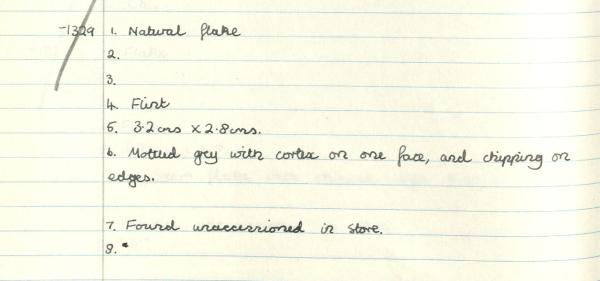 -1329 1. Natural flake
2.
3.
4. Flint
5. 3.2cms x 2.8cms.
6. Mottled grey with cortex on one face, and chipping on
edges.
7. Found unaccessioned in store.
8.